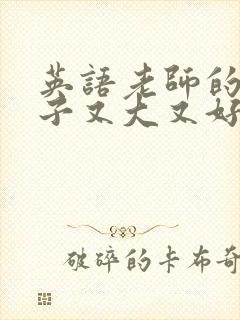 英語老師的
子又大又好
破碎的卡布奇